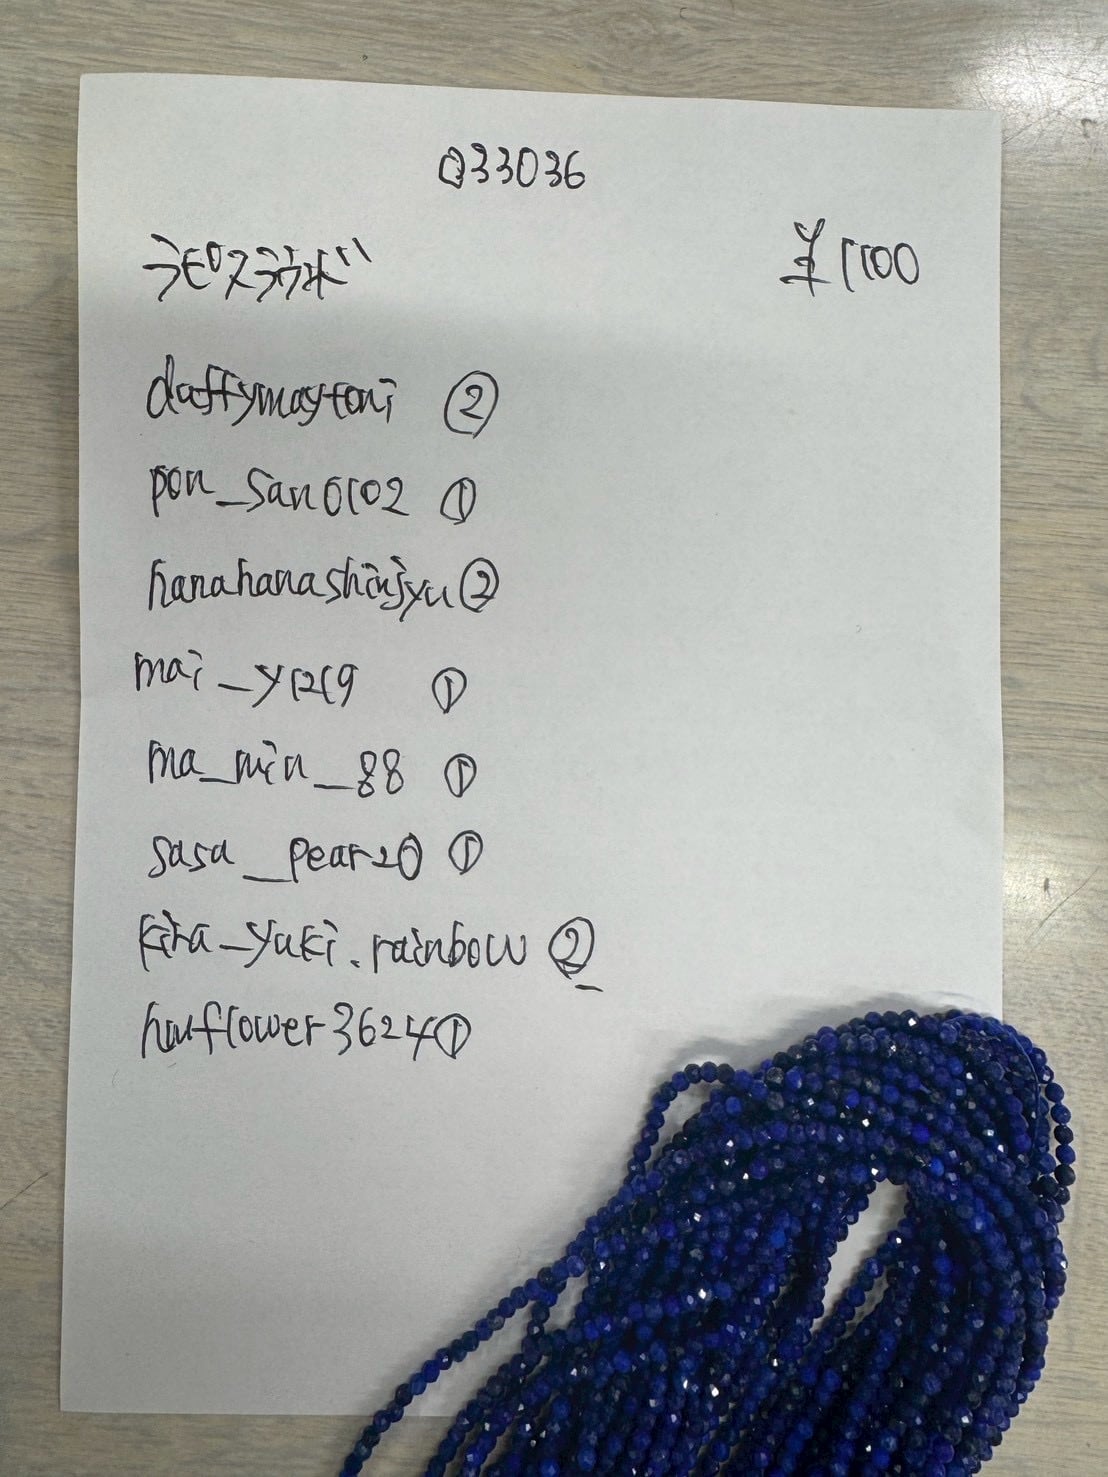 Q33036
ラピスラズリ ¥1100
daffymaytoni ②
pon_san0102 ①
hanahanashinjyu ②
mai_y1219 ①
ma_min_88 ①
sasa_pear20 ①
kira_yuki.rainbow ②
①